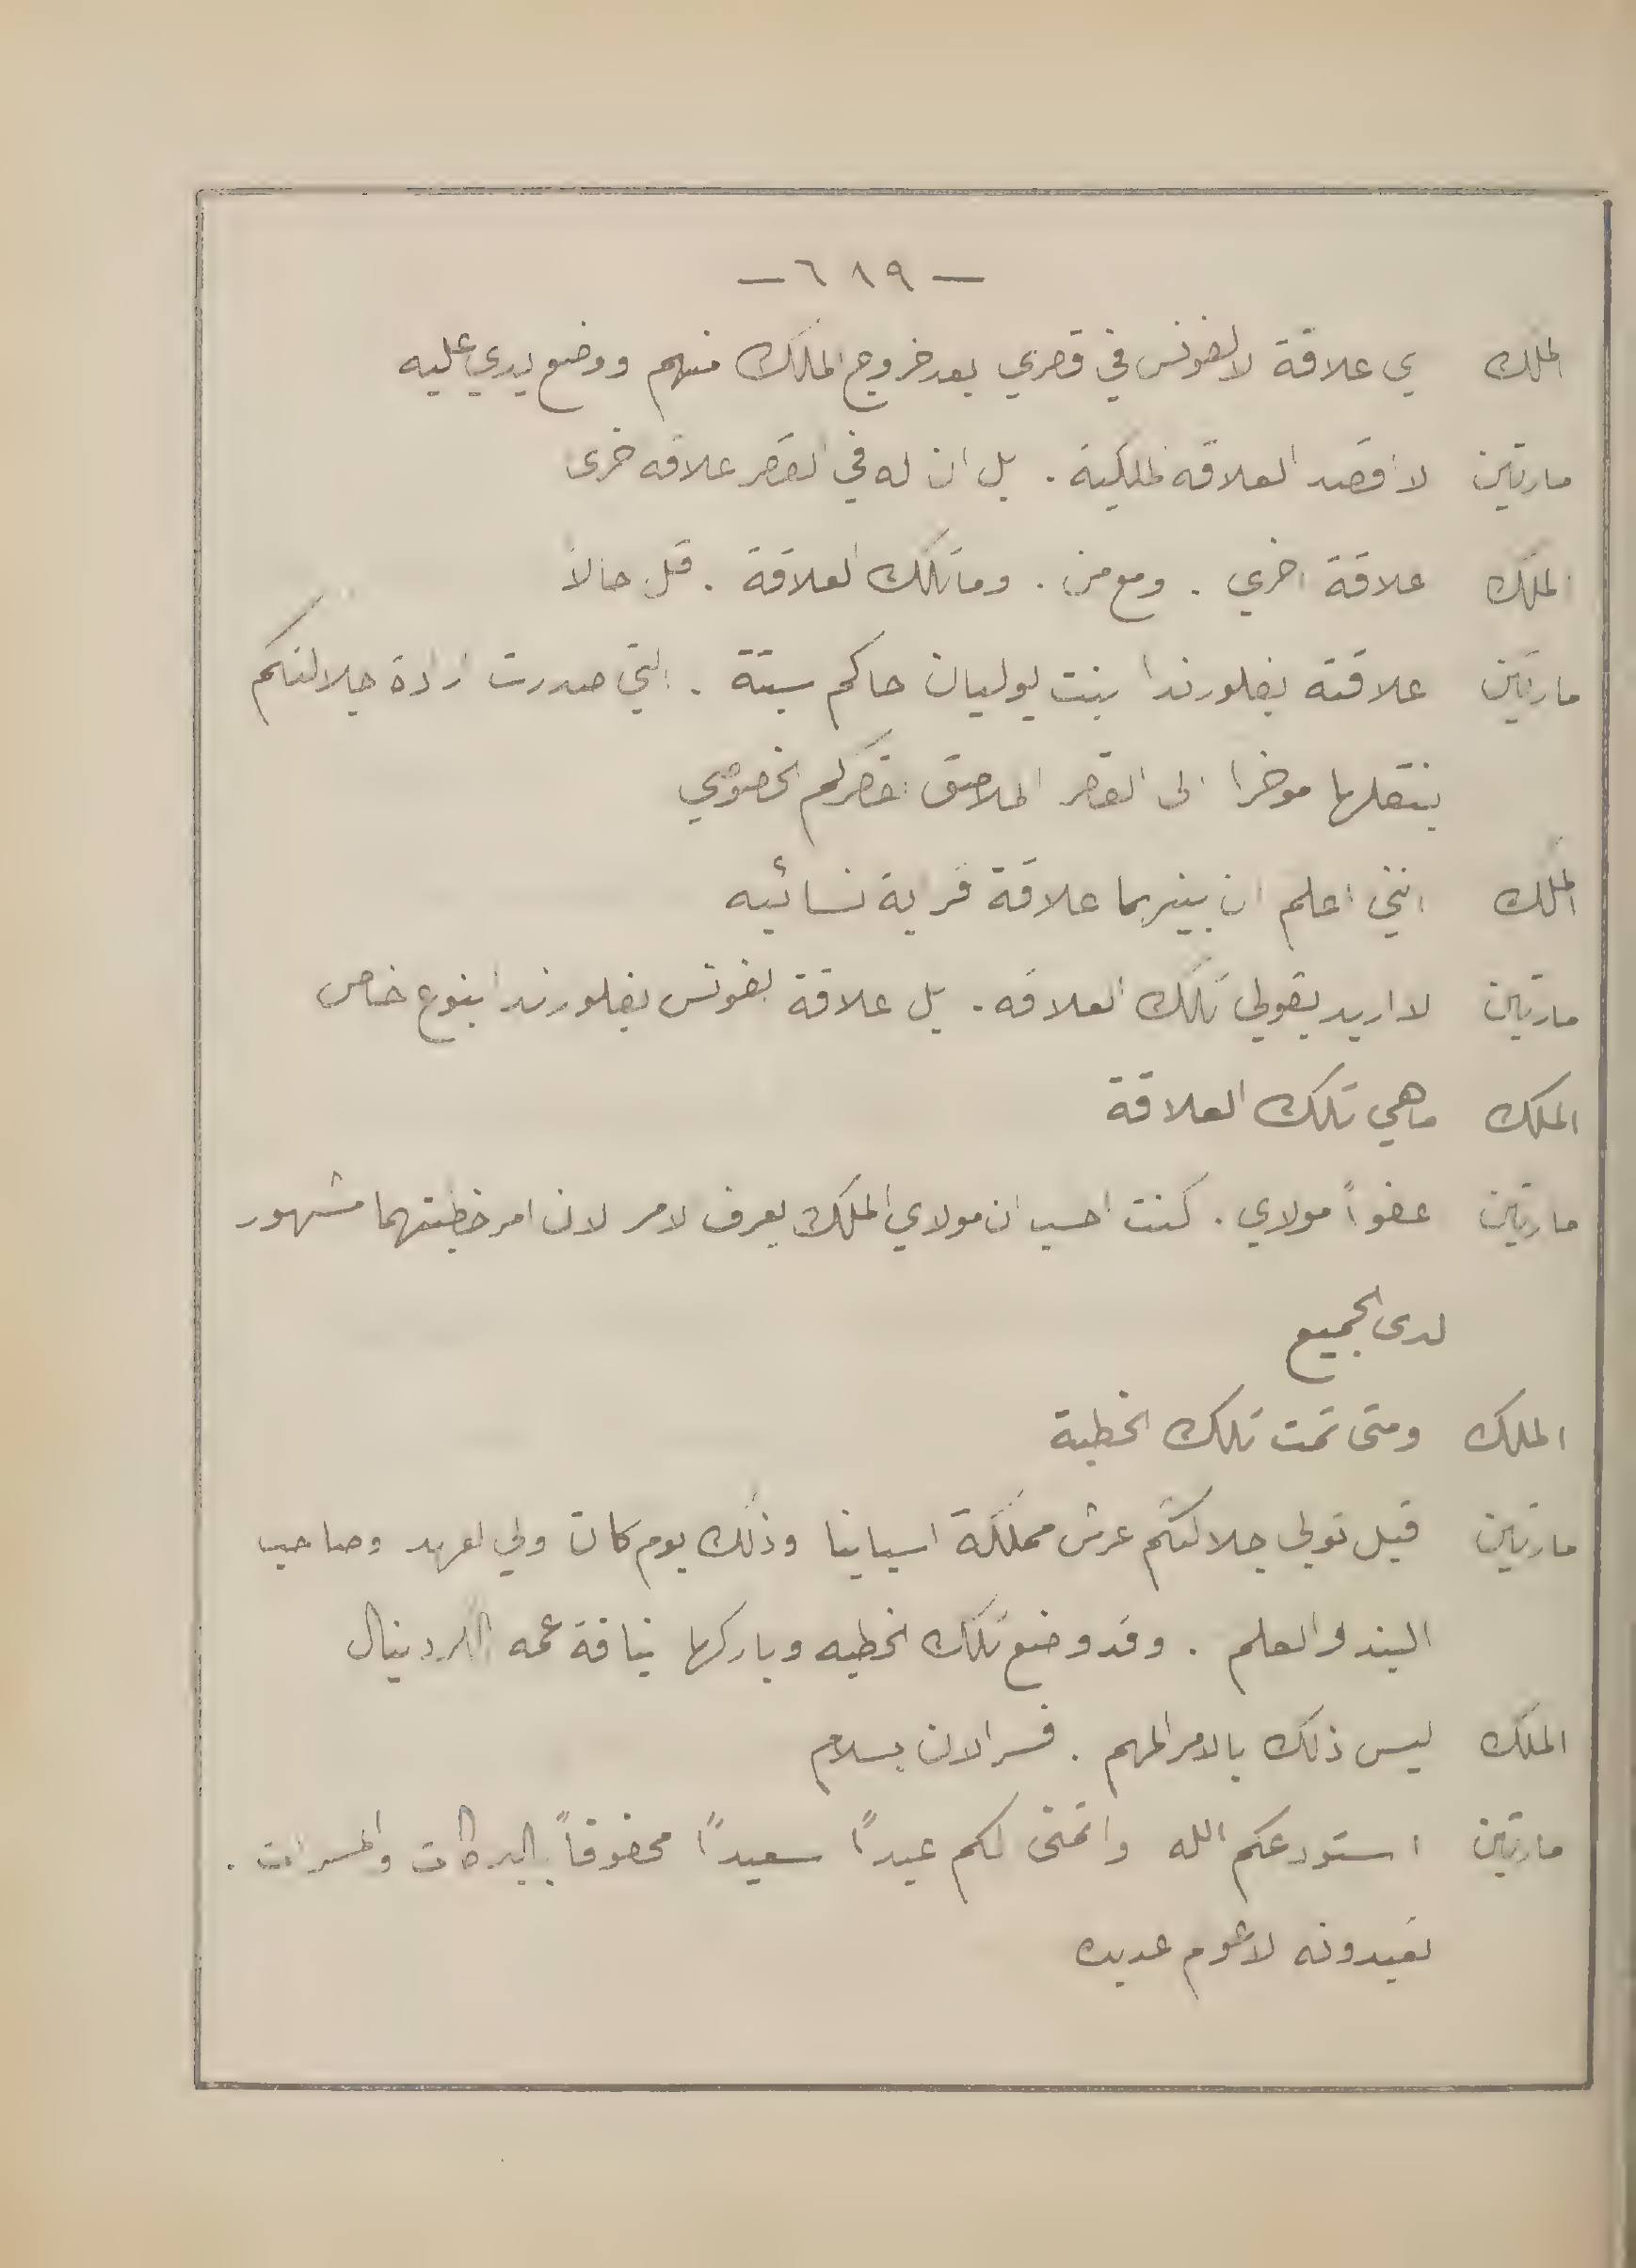 — ٦٨٩ —
الملك ي علاقة لالفونس في قصري بعد خروج الملك منهم ووضع يدي عليه
مارتين لا اقصد العلاقه الملكية . بل ان له في القصر علاقه اخرى
الملك علاقة اخري . ومع من . وما تلك العلاقة . قل حالاً
مارتين علاقته بفلورندا بنت يوليان حاكم سبتة . التي صدرت ارادة جلالتكم
بنقلها موخرا الى القصر الملاصق لقصركم الخصوصي
الملك انني اعلم ان بينهما علاقة قرابة نسائيه
مارتين لا اريد بقولي تلك العلاقه . بل علاقة الفونس بفلورندا بنوع خاص
الملك ماهي تلك العلاقة
مارتين عفواً مولاي . كنت احسب ان مولاي الملك يعرف الامر لان امر خطبتهما مشهور
لدى الجميع
الملك ومتى تمت تلك الخطبة
مارتين قبل تولي جلالتكم عرش مملكة اسبانيا وذلك يوم كان ولي العهد وصاحب
البند والعلم . وقد وضع تلك الخطبه وباركها نيافة عمه الكردينال
الملك ليس ذلك بالامر المهم . فسر الان بسلام
مارتين استودعكم الله واتمنى لكم عيداً سعيداً محفوفاً بالبركات والمسرات .
تعيدونه لاعوام عديده